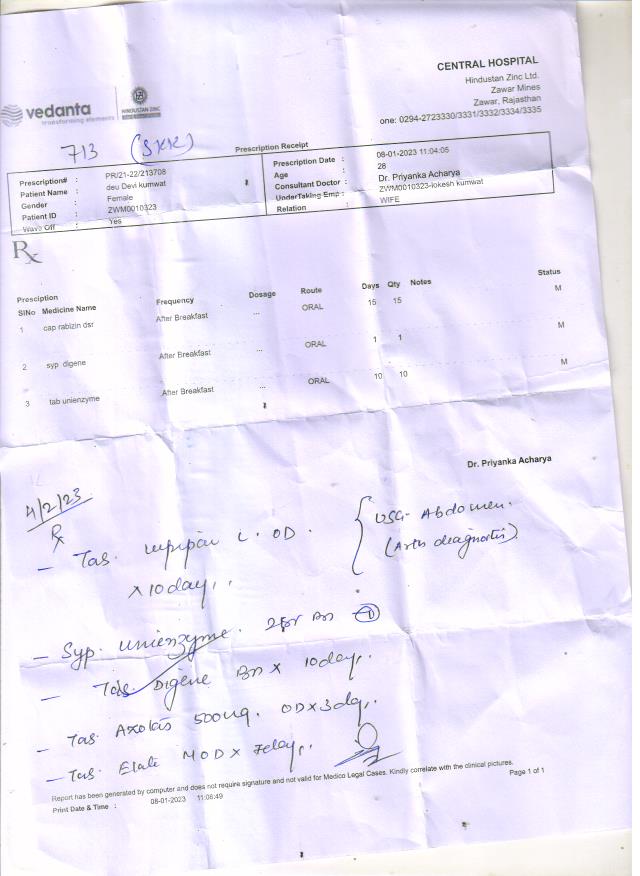 vedanta
transforming elements
HINDUSTAN ZINC
CENTRAL HOSPITAL
Hindustan Zinc Ltd.
Zawar Mines
Zawar, Rajasthan
one: 0294-2723330/3331/3332/3334/3335
713
Prescription Receipt
Prescription# : PR/21-22/213708
Patient Name : deu Devi kumwat
Gender : Female
Patient ID : ZWM0010323
Wave Off : Yes
Prescription Date : 08-01-2023 11:04:05
Age : 28
Consultant Doctor : Dr. Priyanka Acharya
UnderTaking Emp : ZWM0010323-lokesh kumwat
Relation : WIFE
Rx
Presciption
SlNo Medicine Name Frequency Dosage Route Days Qty Notes Status
1 cap rabizin dsr After Breakfast ... ORAL 15 15 M
2 syp digene After Breakfast ... ORAL 1 1 M
3 tab unienzyme After Breakfast ... ORAL 10 10 M
Dr. Priyanka Acharya
4/2/23
Rx
- Tab. OD.
x 10 day
USG- Abdomen.
- Syp. unienzyme.
- Digene x 10 day
- Tab. 500mg. OD x 3 day
- Tab. OD x 7 day
Report has been generated by computer and does not require signature and not valid for Medico Legal Cases. Kindly correlate with the clinical pictures.
Print Date & Time : 08-01-2023 11:06:49
Page 1 of 1